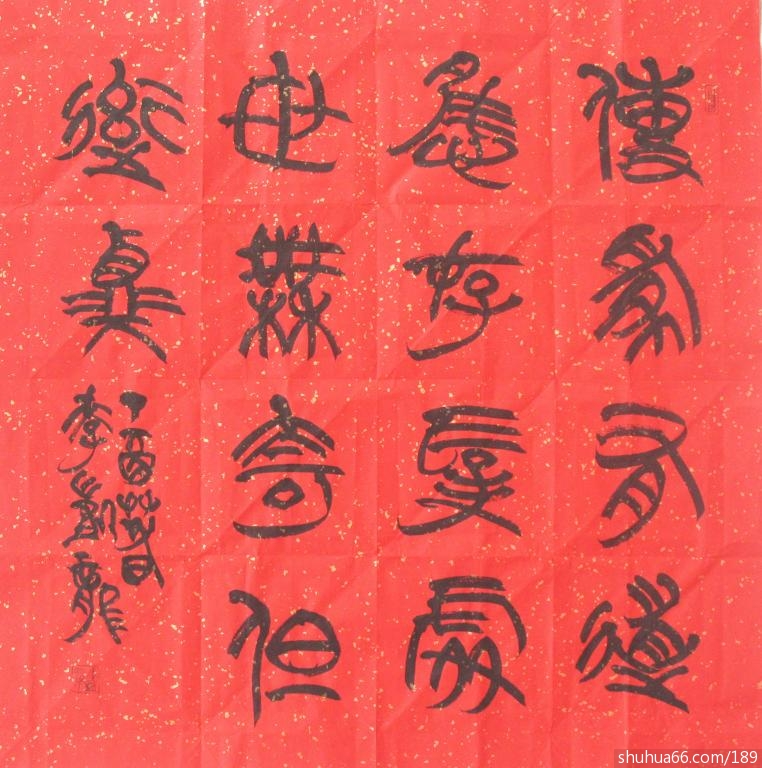 傳家有道
惟存厚處
世無奇但
率真
丁酉春日
李龍
shuhua66.com/189